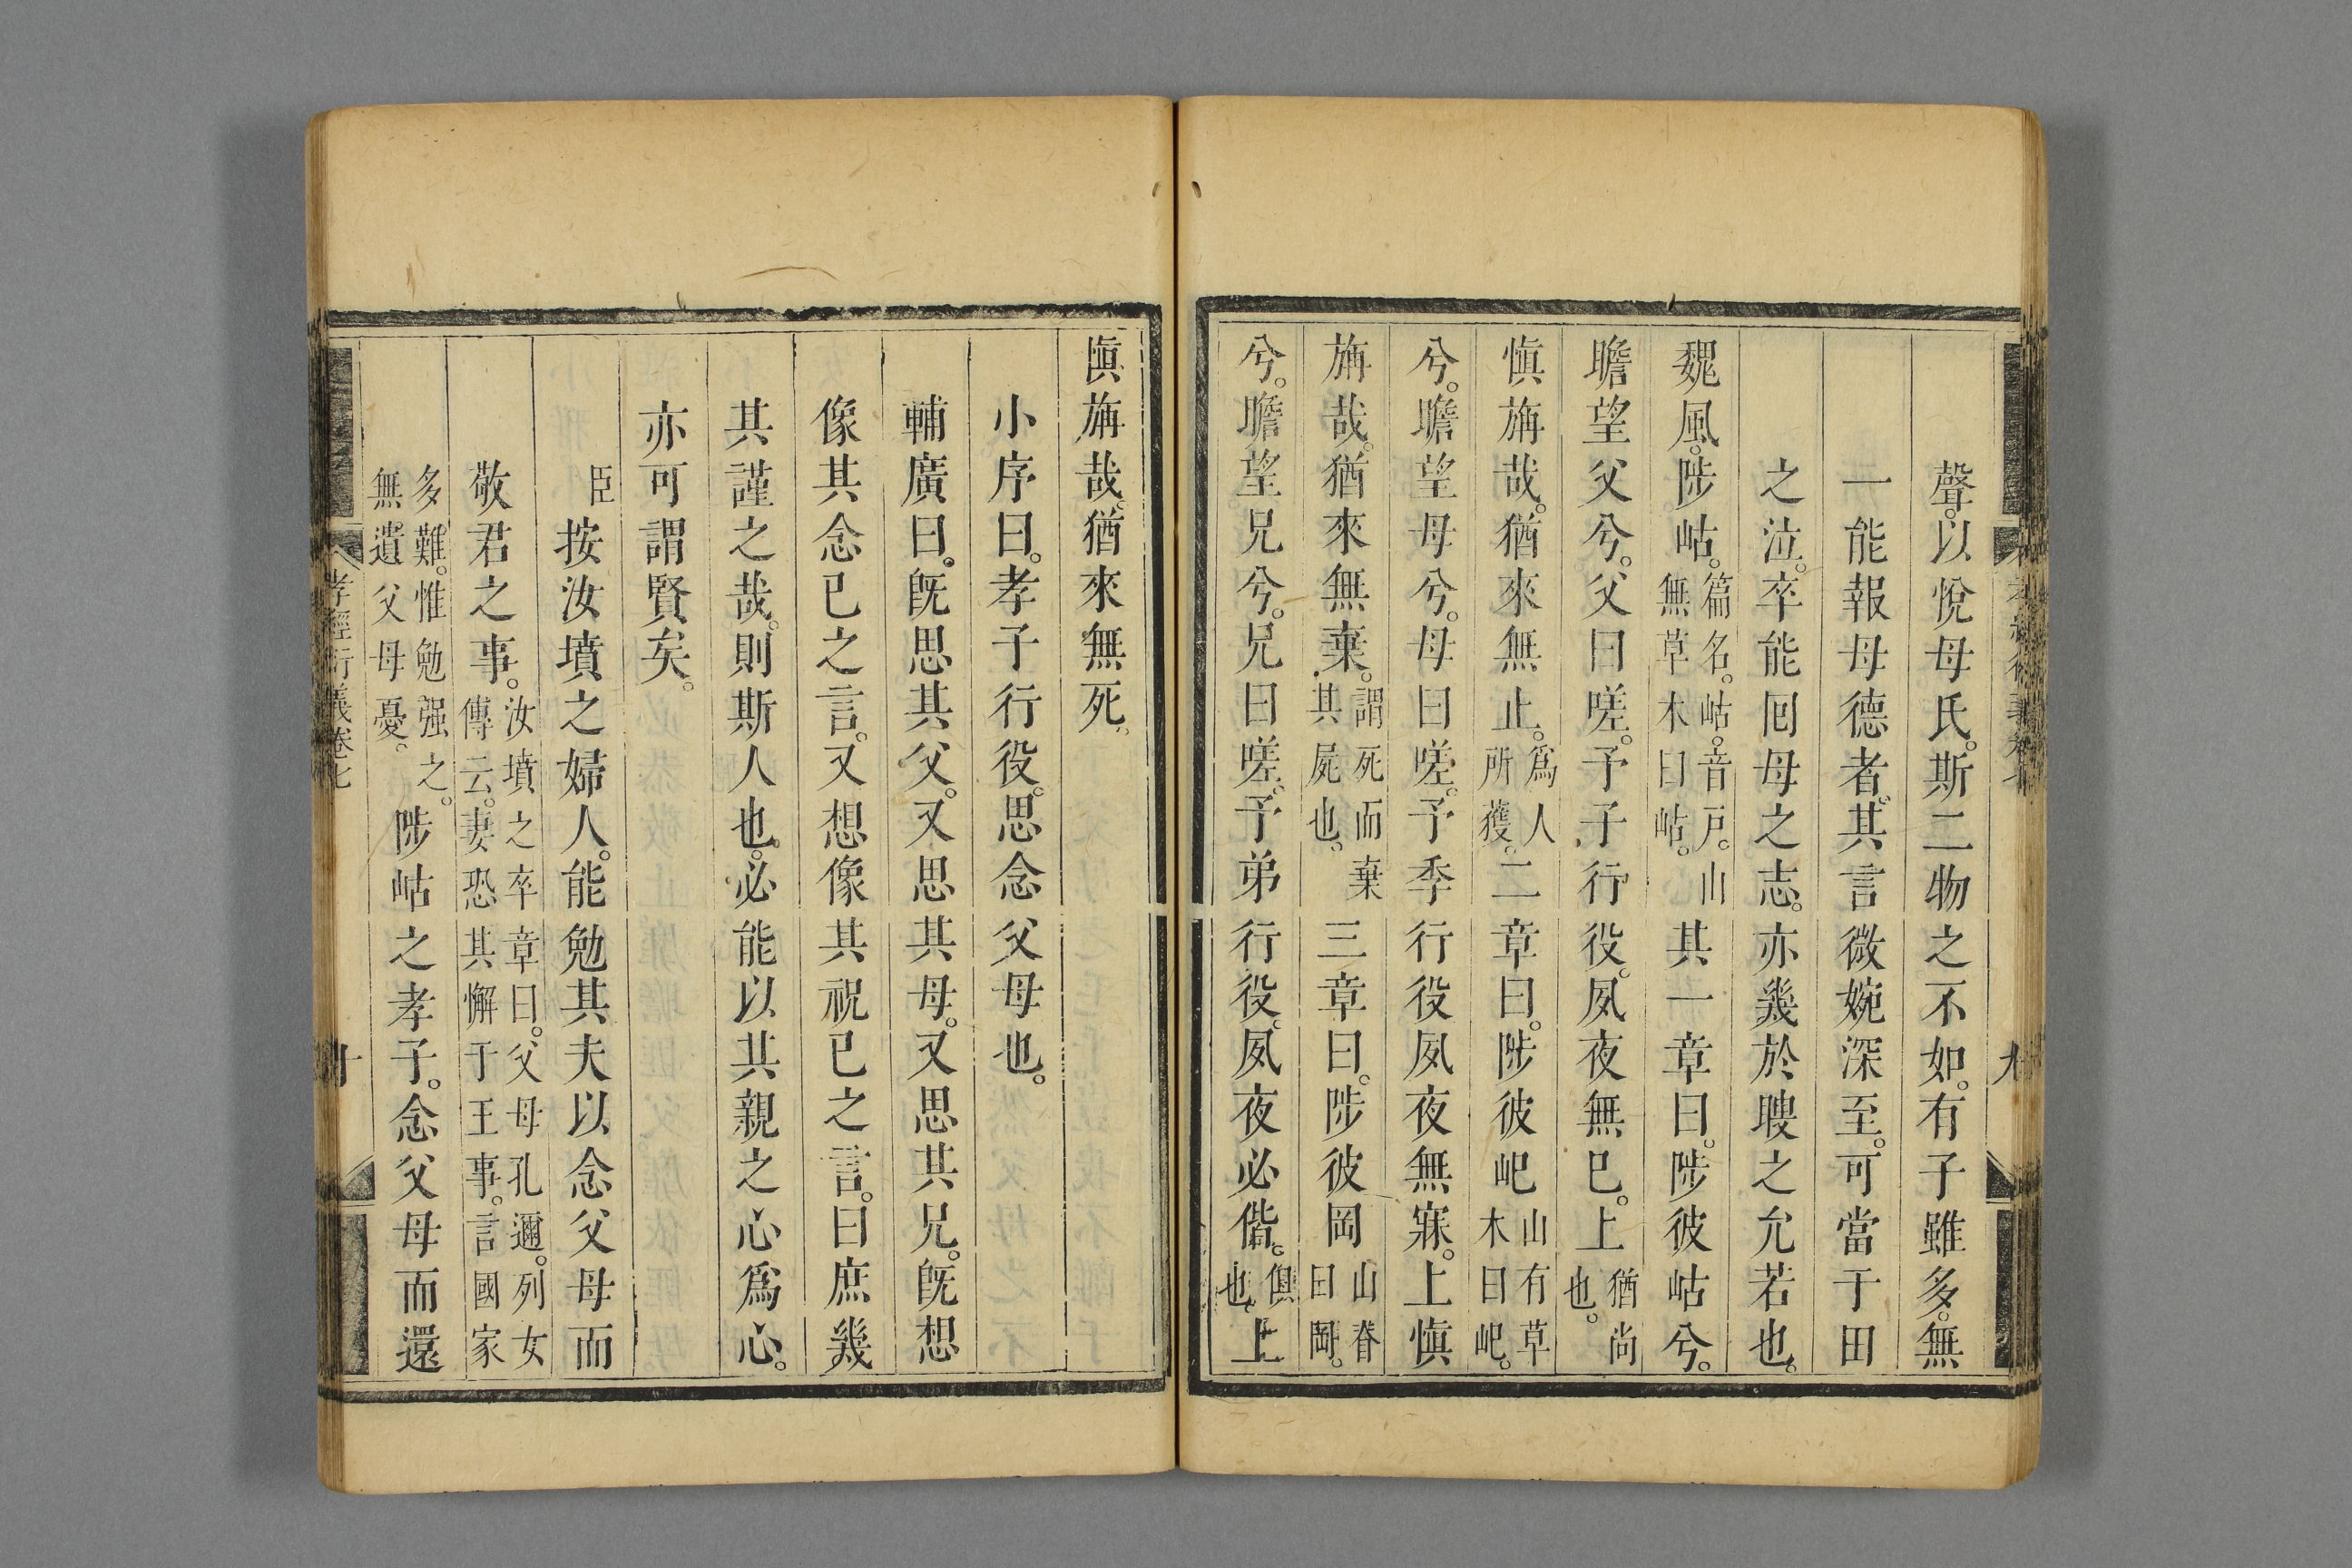 聲。以悅母氏。斯二物之不如。有子雖多。無
一能報母德者。其言微婉深至。可當于田
之泣。卒能囘母之志。亦幾於瞍之允若也。
魏風。陟岵。篇名。岵。音戸。山無草木曰岵。其一章曰。陟彼岵兮。
瞻望父兮。父曰嗟。予子行役。夙夜無已。上猶尚也。
愼旃哉。猶來無止。爲人所獲。二章曰。陟彼屺山有草木曰屺。
兮。瞻望母兮。母曰嗟。予季行役。夙夜無寐。上愼
旃哉。猶來無棄。謂死而棄其屍也。三章曰。陟彼岡山脊曰岡。
兮。瞻望兄兮。兄曰嗟。予弟行役。夙夜必偕。俱也。上
愼旃哉。猶來無死。
小序曰。孝子行役。思念父母也。
輔廣曰。旣思其父。又思其母。又思其兄。旣想
像其念已之言。又想像其祝已之言。曰庶幾
其謹之哉。則斯人也。必能以其親之心爲心。
亦可謂賢矣。
臣按汝墳之婦人。能勉其夫以念父母而
敬君之事。汝墳之卒章曰。父母孔邇。列女傳云。妻恐其懈于王事。言國家
多難。惟勉强之。無遺父母憂。陟岵之孝子。念父母而還
孝經衍義卷七
十
九